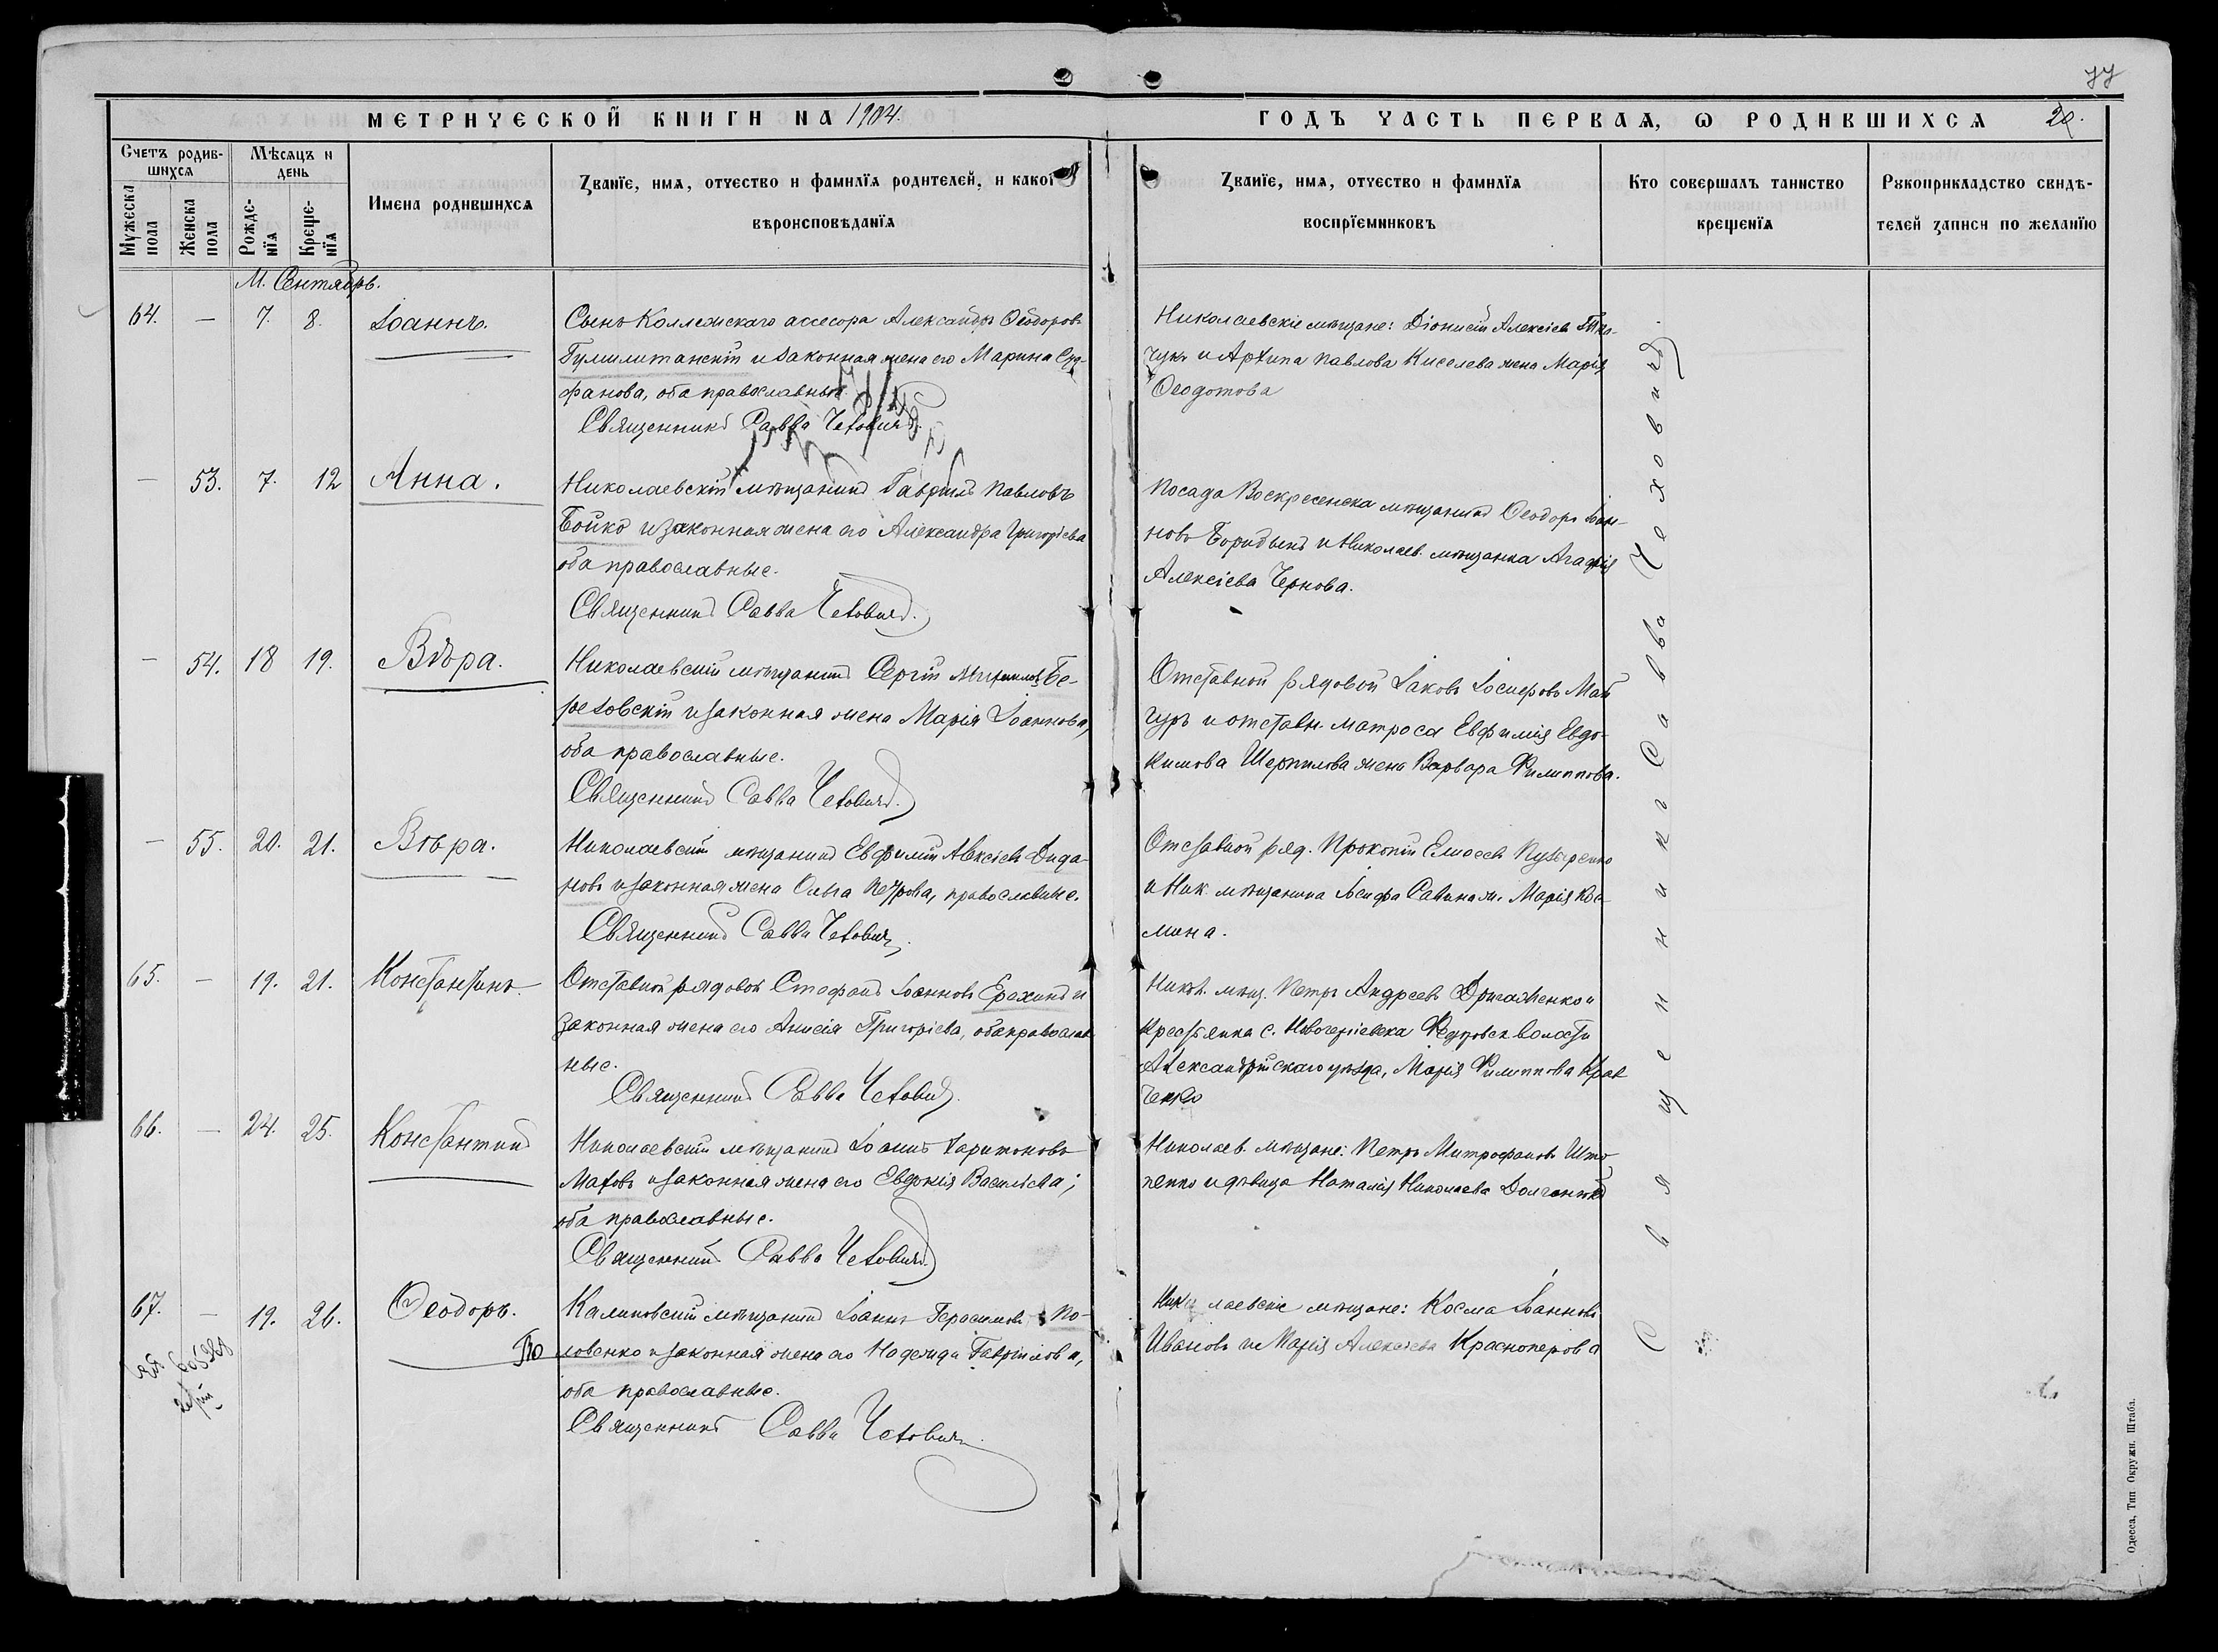 77
МЕТРИЧЕСКОЙ КНИГИ НА 1904.
ГОДЪ ЧАСТЬ ПЕРВАЯ, Ѡ РОДИВШИХСЯ 20.
Счетъ родив-
шихся
Мѣсяцъ и
день
Мужеска
пола
Женска
пола
Рожде-
нія
Креще-
нія
Имена родившихся
Званїе, имя, отчество и фамилїя родителей, и какого
вѣроисповѣданїя
Званїе, имя, отчество и фамилїя
воспрїемниковъ
Кто совершалъ таинство
крещенїя
Рукоприкладство свидѣ-
телей записи по желанїю
М. Сентябрь.
64. — 7. 8. Іоаннъ.
Сынъ Коллежскаго ассесора Александръ Ѳеодоровъ
и законная жена его Марина Сте-
фанова, оба православные.
Священникъ Савва Чеховичъ.
Николаевскіе мѣщане: Діонисій Алексіевъ Тка-
чукъ и Архипа Павлова Киселева жена Марія
Ѳеодотова
— 53. 7. 12 Анна.
Николаевскій мѣщанинъ Гавріилъ Павловъ
Бойко и законная жена его Александра Григоріева
оба православные.
Священникъ Савва Чеховичъ.
Посада Воскресенска мѣщанинъ Ѳеодоръ Іоан-
новъ и Николаев. мѣщанка Агафія
Алексіева Чернова.
— 54. 18 19. Вѣра.
Николаевскій мѣщанинъ Сергій Михаиловъ Бе-
резовскій и законная жена Марія Іоаннова,
оба православные.
Священникъ Савва Чеховичъ.
Отставной рядовой Іаковъ Іосифовъ Ма
и отставн. матроса Евфимія Евдо-
кимова жена Варвара Филиппова.
— 55. 20. 21. Вѣра.
Николаевскій мѣщанинъ Евфимій Алексіевъ Дида-
новъ и законная жена Ольга Петрова, православные.
Священникъ Савва Чеховичъ.
Отставной ряд. Прокопій
и Ник. мѣщанина Іосифа ж. Марія Кос-
мина.
65. — 19. 21. Константинъ.
Отставной рядовой Стефанъ Іоанновъ Ерохинъ и
законная жена его Анисія Григоріева, оба православ
ные.
Священникъ Савва Чеховичъ.
Никол. мѣщ. Петръ Андреевъ и
Крестьянка с. волости
Александрійскаго уѣзда, Марія Филиппова Крав
ченко
66. — 24. 25. Константинъ
Николаевскій мѣщанинъ Іоаннъ Харитоновъ
Маховъ и законная жена его Евдокія Васильева;
оба православные.
Священникъ Савва Чеховичъ.
Николаев. мѣщане: Петръ Митрофановъ Што
пенко и дѣвица Наталія Николаева
67. — 19. 26. Ѳеодоръ.
Калиновскій мѣщанинъ Іоаннъ Герасимовъ По-
ловенко и законная жена его Надежда Гавріилова,
оба православные.
Священникъ Савва Чеховичъ.
Николаевскіе мѣщане: Косма Іоанновъ
Ивановъ и Марія Алексіева Красноперова
Священникъ Савва Чеховичъ.
Одесса, Тип Окружн. Штаба.